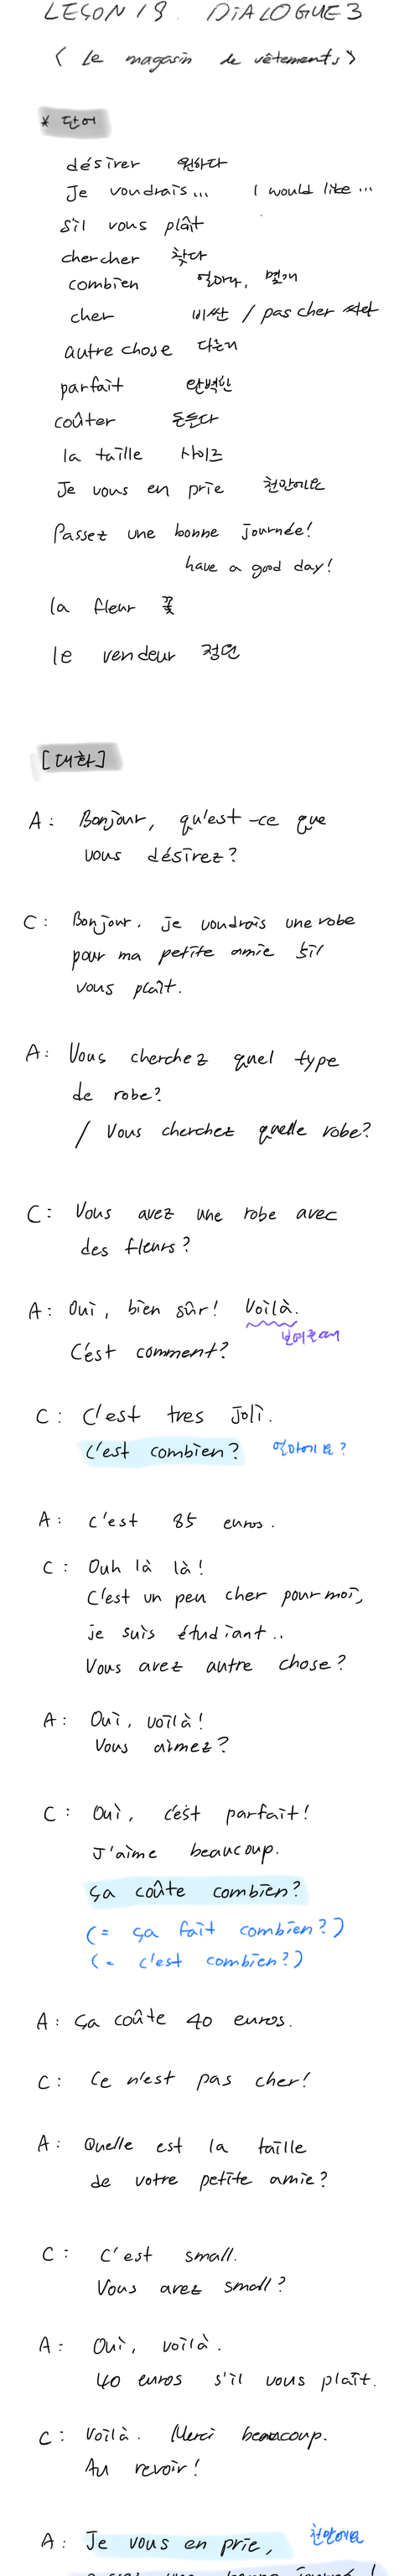 LEÇON 18. DIALOGUE 3
< Le magasin de vêtements >
* 단어
désirer 원하다
Je voudrais... I would like ...
S'il vous plaît
chercher 찾다
combien 얼마나, 몇개
cher 비싼 / pas cher 싸다
autre chose 다른거
parfait 완벽한
coûter 돈든다
la taille 사이즈
Je vous en prie 천만에요
Passez une bonne journée!
have a good day!
la fleur 꽃
le vendeur 점원
[대화]
A: Bonjour, qu'est-ce que
vous désirez?
C: Bonjour. je voudrais une robe
pour ma petite amie s'il
vous plaît.
A: Vous cherchez quel type
de robe?
/ Vous cherchez quelle robe?
C: Vous avez une robe avec
des fleurs?
A: Oui, bien sûr! Voilà.
보여준대
C'est comment?
C: C'est tres joli.
C'est combien? 얼마에요?
A: C'est 85 euros.
C: Ouh là là!
C'est un peu cher pour moi,
je suis étudiant..
Vous avez autre chose?
A: Oui, voilà!
Vous aimez?
C: Oui, c'est parfait!
J'aime beaucoup.
ça coûte combien?
(= ça fait combien?)
(= c'est combien?)
A: ça coûte 40 euros.
C: Ce n'est pas cher!
A: Quelle est la taille
de votre petite amie?
C: C'est small.
Vous avez small?
A: Oui, voilà.
40 euros s'il vous plaît.
C: Voilà. Merci beaucoup.
Au revoir!
A: Je vous en prie, 천만에요